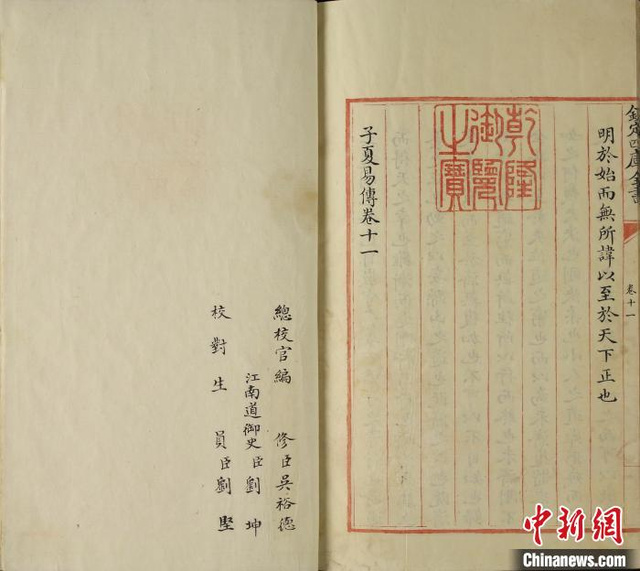 欽定四庫全書
卷十一
明於始而無所諱以至於天下正也
乾隆
御覽
之寶
子夏易傳卷十一
總校官編修臣吳裕德
江南道御史臣劉坤
校對生員臣劉堅
中新网
Chinanews.com